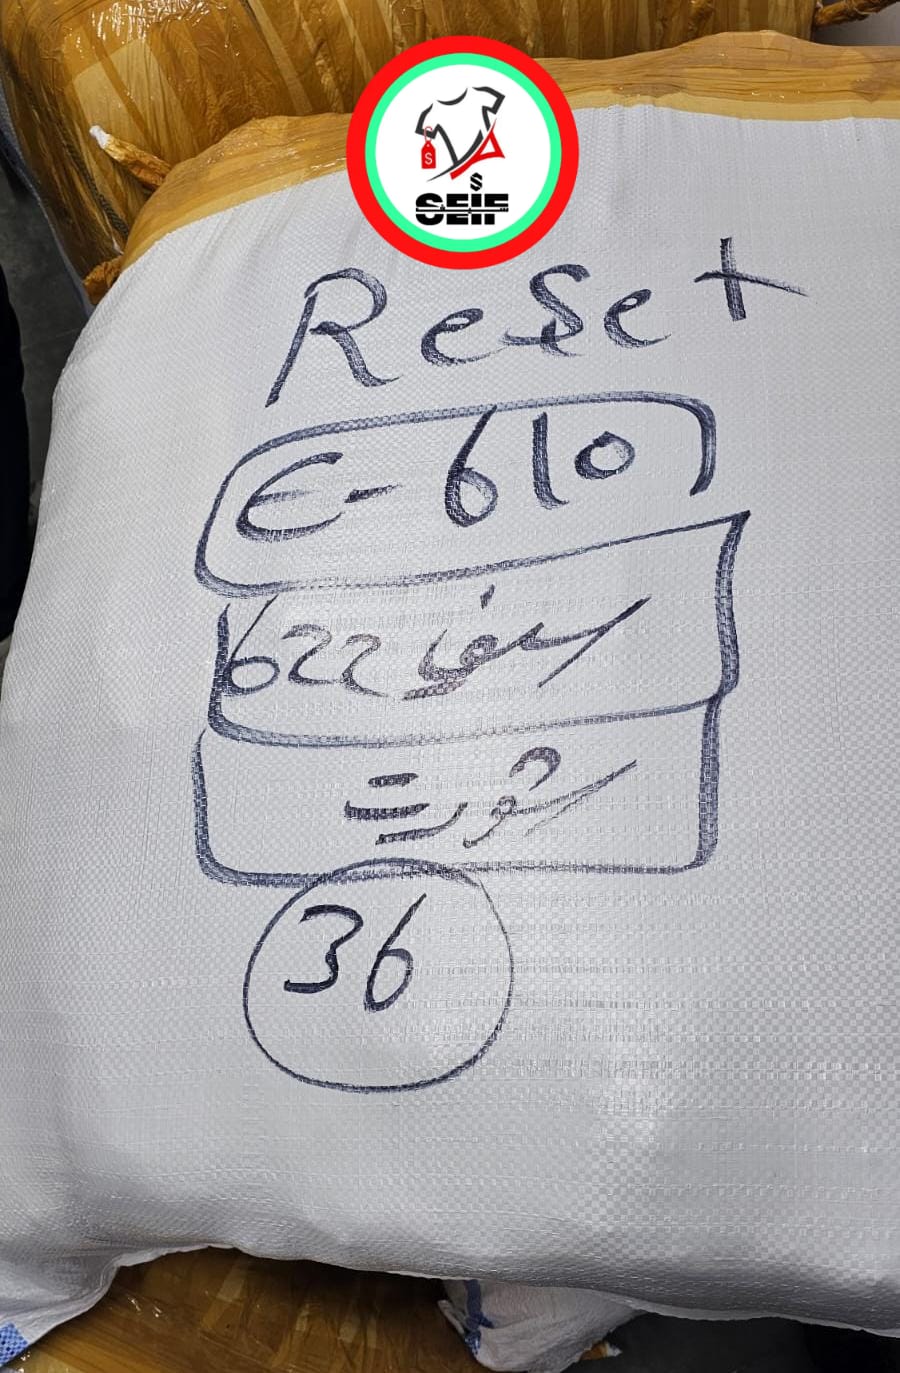 $
$
SEIF
ReSet
E-610
622 سيف
شورت
36